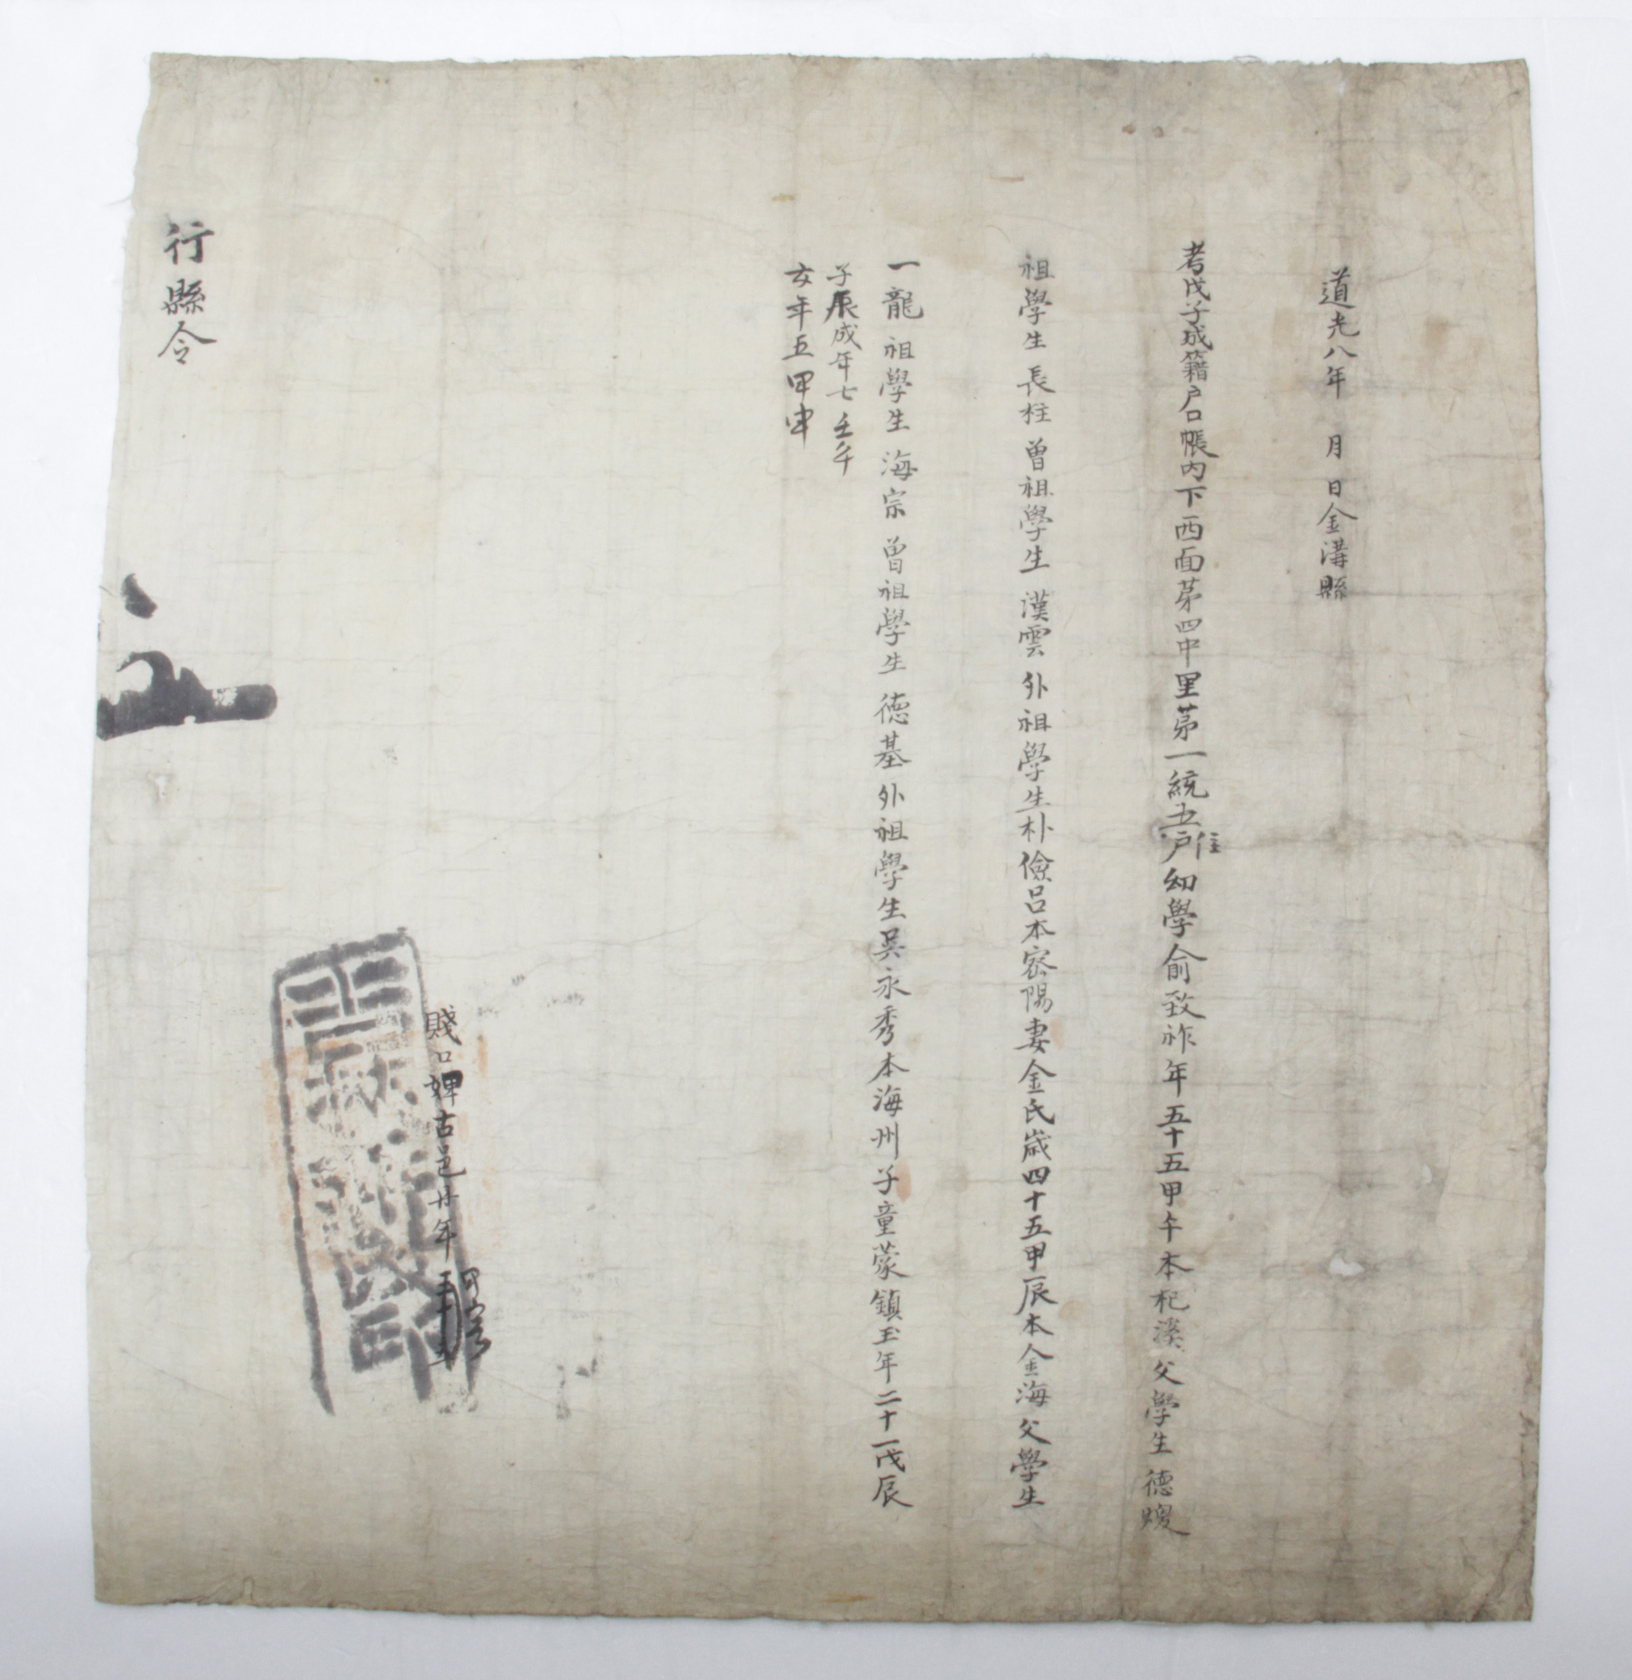 道光八年 月 日金溝縣
考戊子成籍戶口帳內下西面苐四中里苐一統五戶住幼學俞致祚年五十五甲午本杞溪父學生德
祖學生長柱曾祖學生漢雲外祖學生朴儉呂本密陽妻金氏歲四十五甲辰本金海父學生
一龍祖學生海宗曾祖學生德基外祖學生吳永秀本海州子童蒙鎭玉年二十一戊辰
子辰成年七壬午
女年五甲申
賤口婢古邑廿年
行縣令